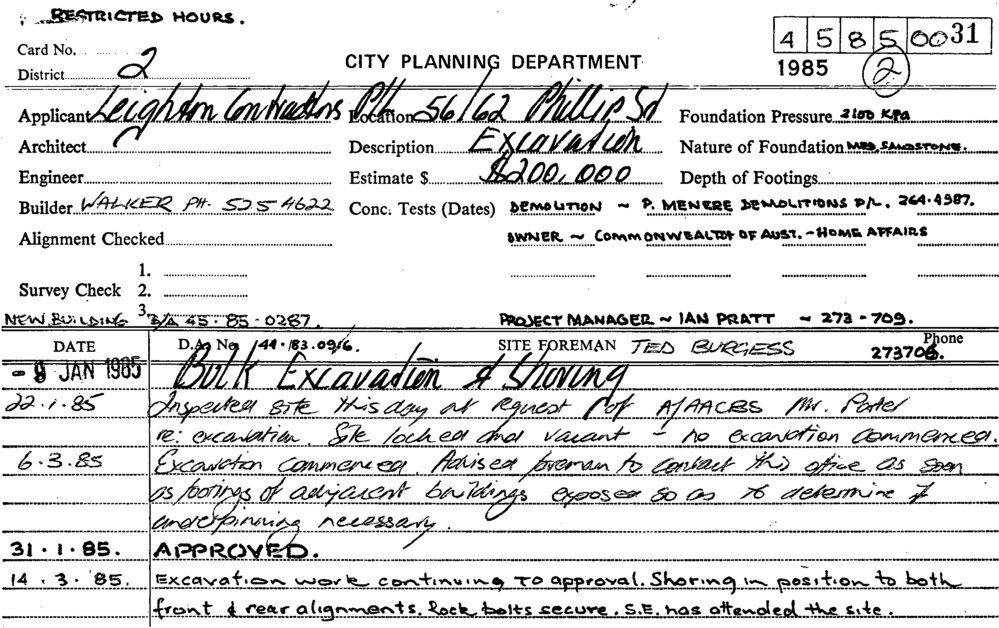 RESTRICTED HOURS.
Card No.
4 5 8 5 00 31
District 2
CITY PLANNING DEPARTMENT
1985 2
Applicant Leighton Contractors P/L Location 56/62 Phillip St Foundation Pressure 2100 KPa
Architect Description Excavation Nature of Foundation MED. SANDSTONE.
Engineer Estimate $ $200,000 Depth of Footings
Builder WALKER PH. 525 4622 Conc. Tests (Dates) DEMOLITION ~ P. MENERE DEMOLITIONS P/L. 264.4987.
Alignment Checked OWNER ~ COMMONWEALTH OF AUST. - HOME AFFAIRS
1.
Survey Check 2.
3.
NEW BUILDING B/A 45.85.0287. PROJECT MANAGER ~ IAN PRATT ~ 273-709.
DATE D.A. No. 44.83.0916. SITE FOREMAN TED BURGESS Phone 273708.
- 9 JAN 1985 Bulk Excavation & Shoring
22.1.85 Inspected site this day at request of A/AACBS Mr. Porter
re: excavation. Site locked and vacant - no excavation commenced.
6.3.85 Excavation commenced. Advised foreman to contact this office as soon
as footings of adjacent buildings exposed so as to determine if
underpinning necessary.
31.1.85. APPROVED.
14.3.'85. Excavation work continuing to approval. Shoring in position to both
front & rear alignments. Rock bolts secure. S.E. has attended the site.